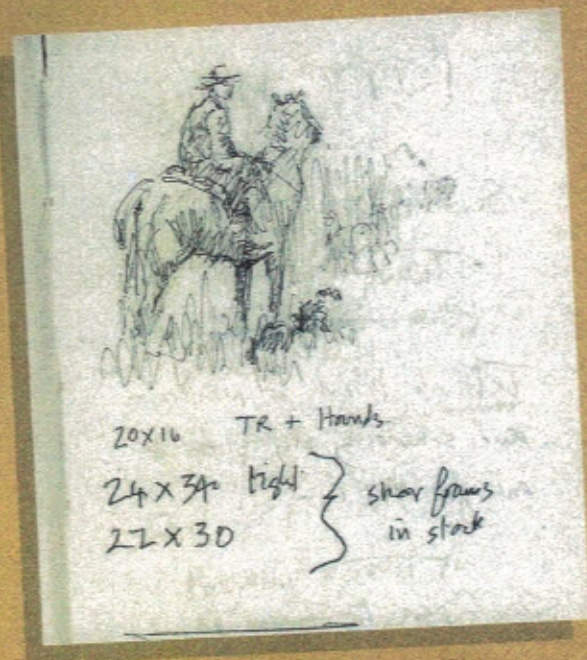 20x16 TR + Hounds
24 x 34 tight
22 x 30
show frames
in stock